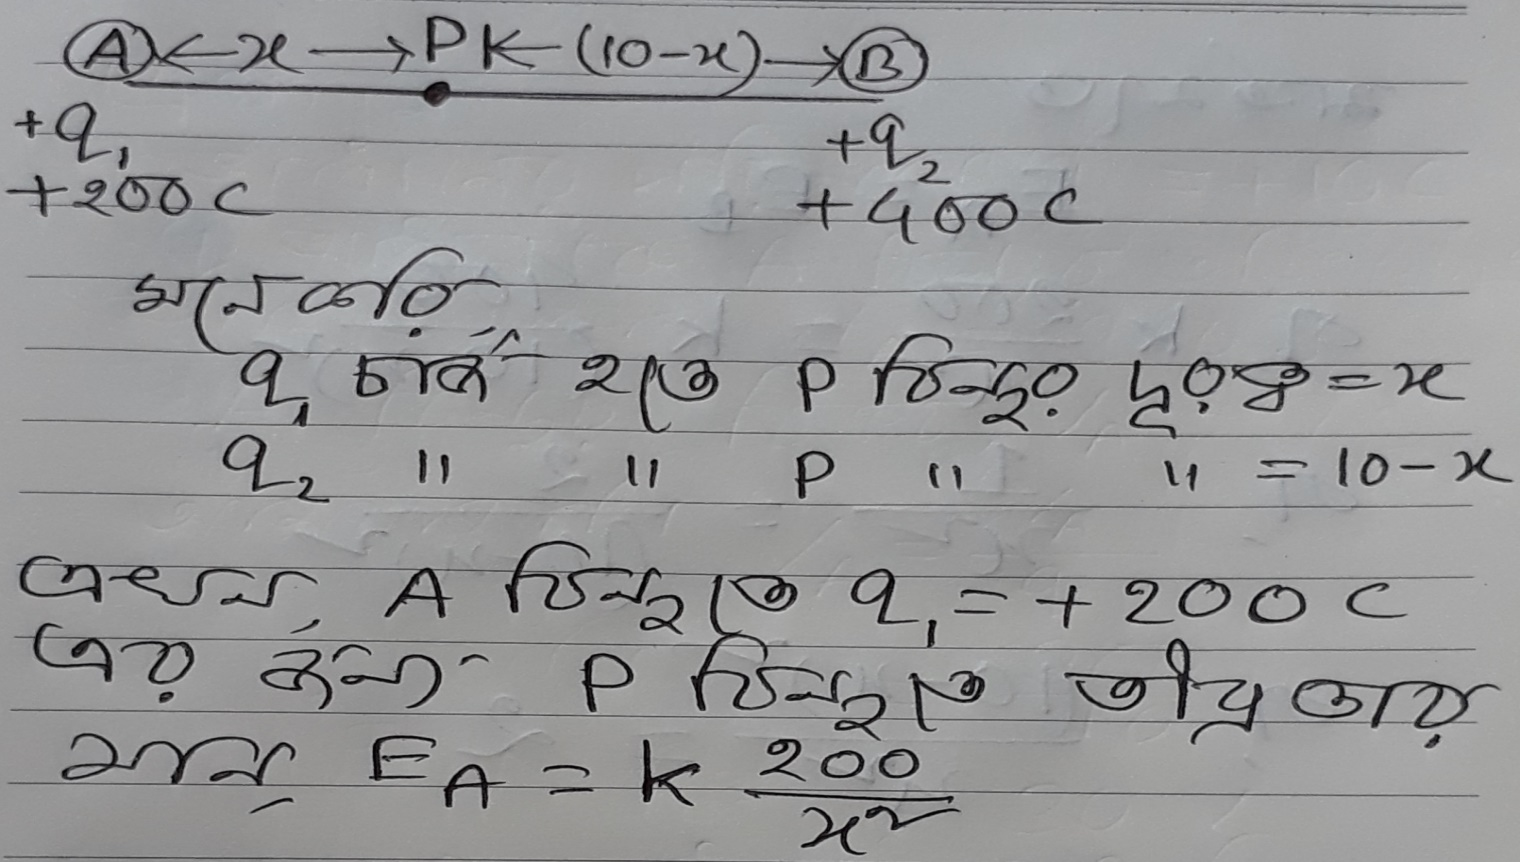 (A)←x→P←(10-x)→(B)
+q₁ +q₂
+200 C +400 C
মনে করি,
q₁ চার্জ হতে P বিন্দুর দূরত্ব = x
q₂ " " P " " = 10-x
এখন, A বিন্দুতে q₁ = +200 C
এর জন্য P বিন্দুতে তীব্রতার
মান, E_A = k 200/x²